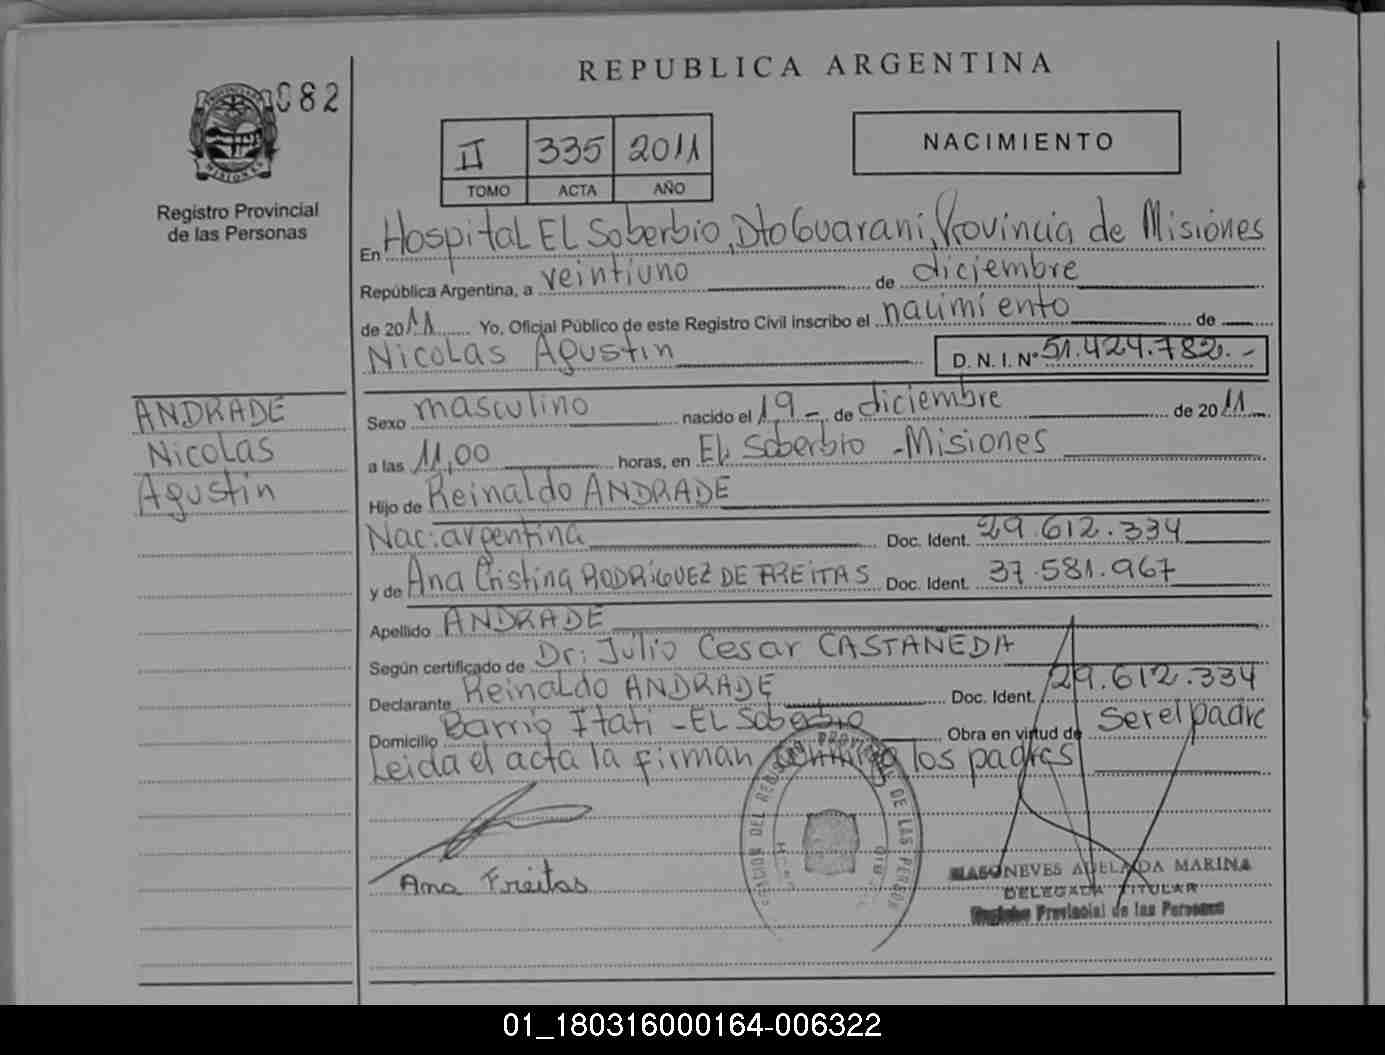 REPUBLICA ARGENTINA
082
NACIMIENTO
II 335 2011
TOMO ACTA AÑO
Registro Provincial
de las Personas
En Hospital El Soberbio, Dto Guarani, Provincia de Misiones
República Argentina, a veintiuno de diciembre
de 2011 Yo, Oficial Público de este Registro Civil inscribo el nacimiento de
Nicolas Agustin D. N. I. Nº 51.424.782.-
ANDRADE
Nicolas
Agustin
Sexo masculino nacido el 19 - de diciembre de 2011
a las 11,00 horas, en El Soberbio - Misiones
Hijo de Reinaldo ANDRADE
Nac: argentina Doc. Ident. 29.612.334
y de Ana Cristina RODRIGUEZ DE FREITAS Doc. Ident. 37.581.967
Apellido ANDRADE
Según certificado de Dr: Julio Cesar CASTAÑEDA
Declarante Reinaldo ANDRADE Doc. Ident. 29.612.334
Domicilio Barrio Itati - El Soberbio Obra en virtud de Ser el padre
Leida el acta la firman conmigo los padres
Ana Freitas
PROVINCIAL DE LAS PERSON
NEVES ADELAIDA MARINA
DELEGADA TITULAR
Registro Provincial de las Personas
01_180316000164-006322